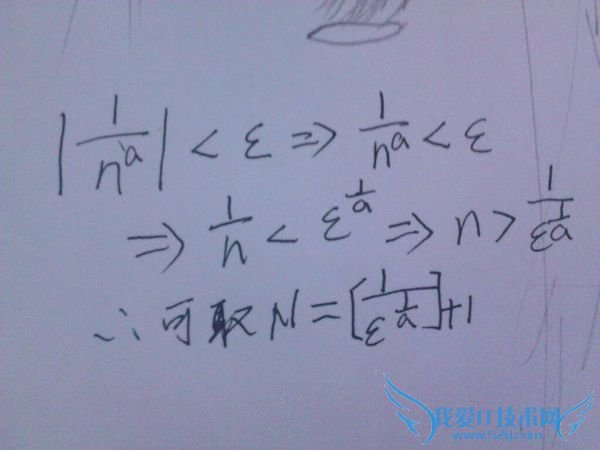 |1/n^a| < ε ⇒ 1/n^a < ε
⇒ 1/n < ε^(1/a) ⇒ n > 1/ε^(1/a)
∴ 可取 N = [1/ε^(1/a)]+1
我爱IT技术网